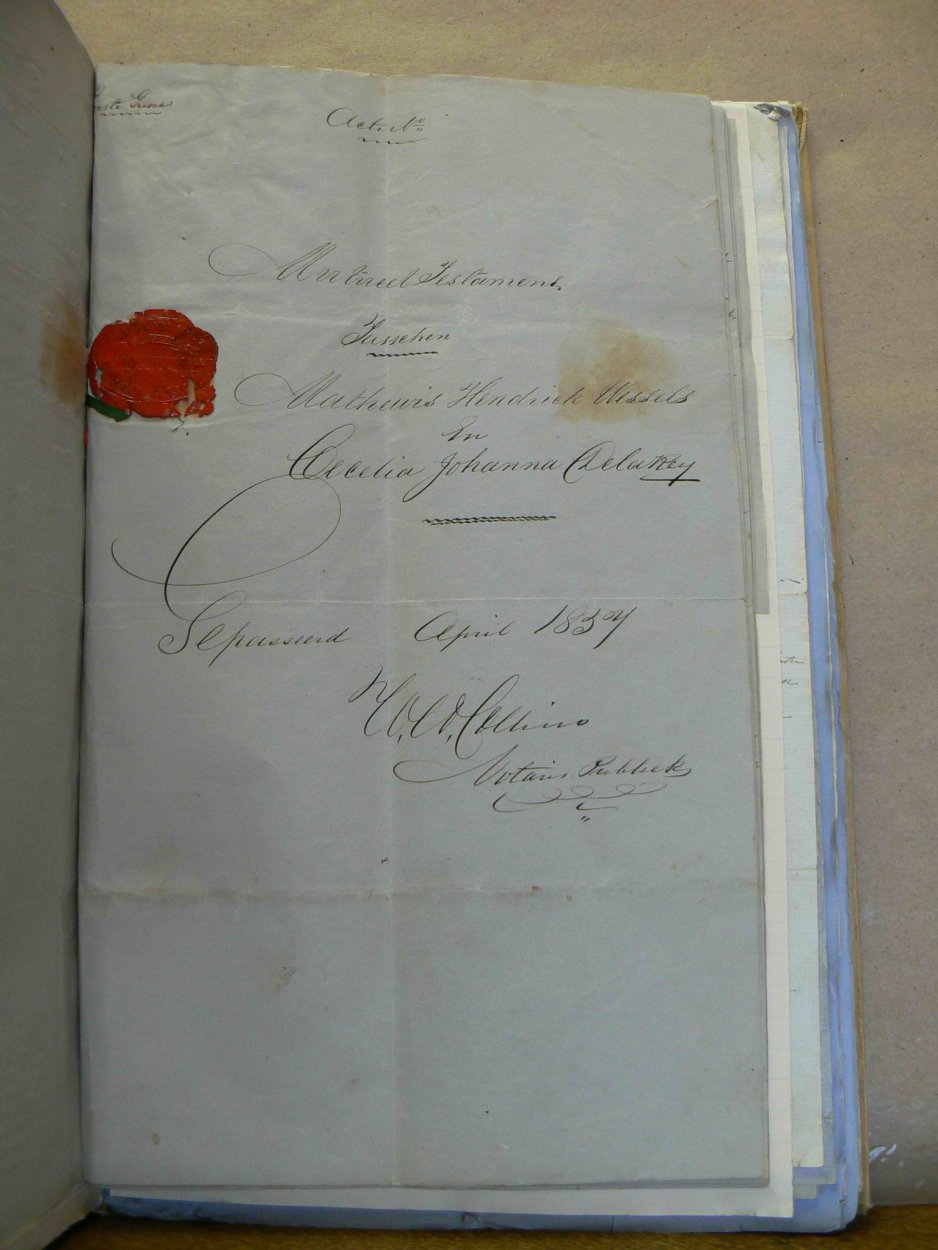 Grosse
Acte No
Mutueel Testament
Tusschen
Mathewis Hendrick Wessels
En
Cecelia Johanna Delarey
Gepasseerd April 1857
W. W. Collins
Notaris Publiek